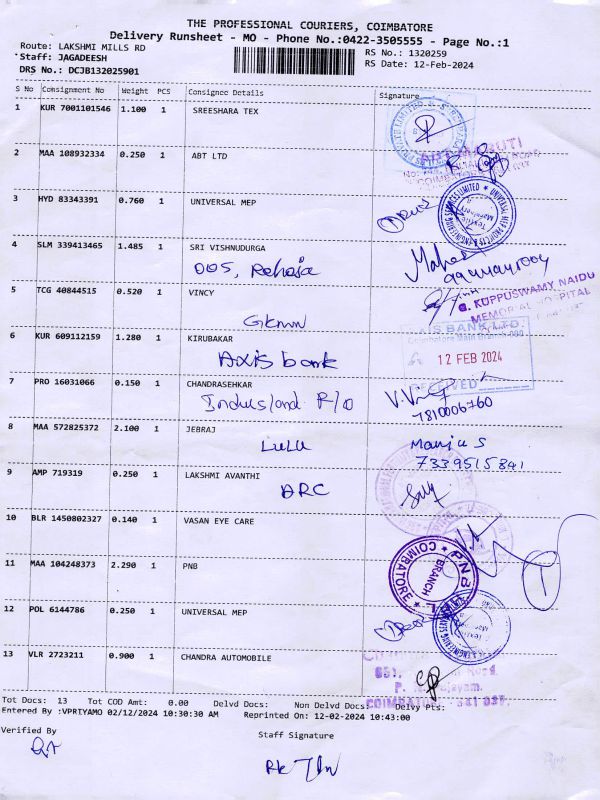 THE PROFESSIONAL COURIERS, COIMBATORE
Delivery Runsheet - MO - Phone No.:0422-3505555 - Page No.:1
Route: LAKSHMI MILLS RD
RS No.: 1320259
Staff: JAGADEESH
RS Date: 12-Feb-2024
DRS No.: DCJB132025901
S No Consignment No Weight PCS Consignee Details Signature
1 KUR 7001101546 1.100 1 SREESHARA TEX
2 MAA 108932334 0.250 1 ABT LTD
3 HYD 83343391 0.760 1 UNIVERSAL MEP
4 SLM 339413465 1.485 1 SRI VISHNUDURGA
DOS, Raheja
5 TCG 40844515 0.520 1 VINCY
GKNM
G. KUPPUSWAMY NAIDU
MEMORIAL HOSPITAL
6 KUR 609112159 1.280 1 KIRUBAKAR
Axis bank
AXIS BANK LTD.
12 FEB 2024
RECEIVED
7 PRO 16031066 0.150 1 CHANDRASEHKAR
Indusland P/O
7810006760
8 MAA 572825372 2.100 1 JEBRAJ
LULU
Manju S
7339515841
9 AMP 719319 0.250 1 LAKSHMI AVANTHI
ARC
10 BLR 1450802327 0.140 1 VASAN EYE CARE
11 MAA 104248373 2.290 1 PNB
PNB
BRANCH
COIMBATORE
12 POL 6144786 0.250 1 UNIVERSAL MEP
13 VLR 2723211 0.900 1 CHANDRA AUTOMOBILE
Tot Docs: 13 Tot COD Amt: 0.00 Delvd Docs: Non Delvd Docs: Delvy Pts:
Entered By :VPRIYAMO 02/12/2024 10:30:30 AM Reprinted On: 12-02-2024 10:43:00
Verified By
Staff Signature